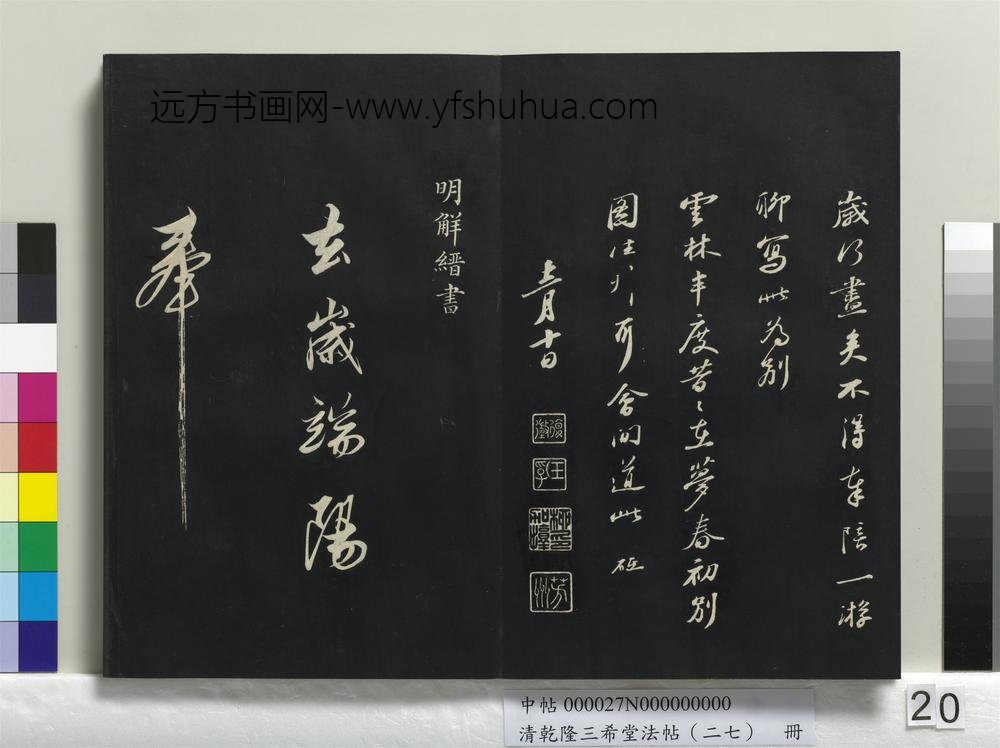 远方书画网-www.yfshuhua.com
歲行盡矣不得奉陪一游
聊寫此為別
雲林丰度昔〻在夢春初別
圖佳
可會間道此
明解縉書
去歲端陽
奉
中帖 000027N000000000
清乾隆三希堂法帖（二七） 冊
20